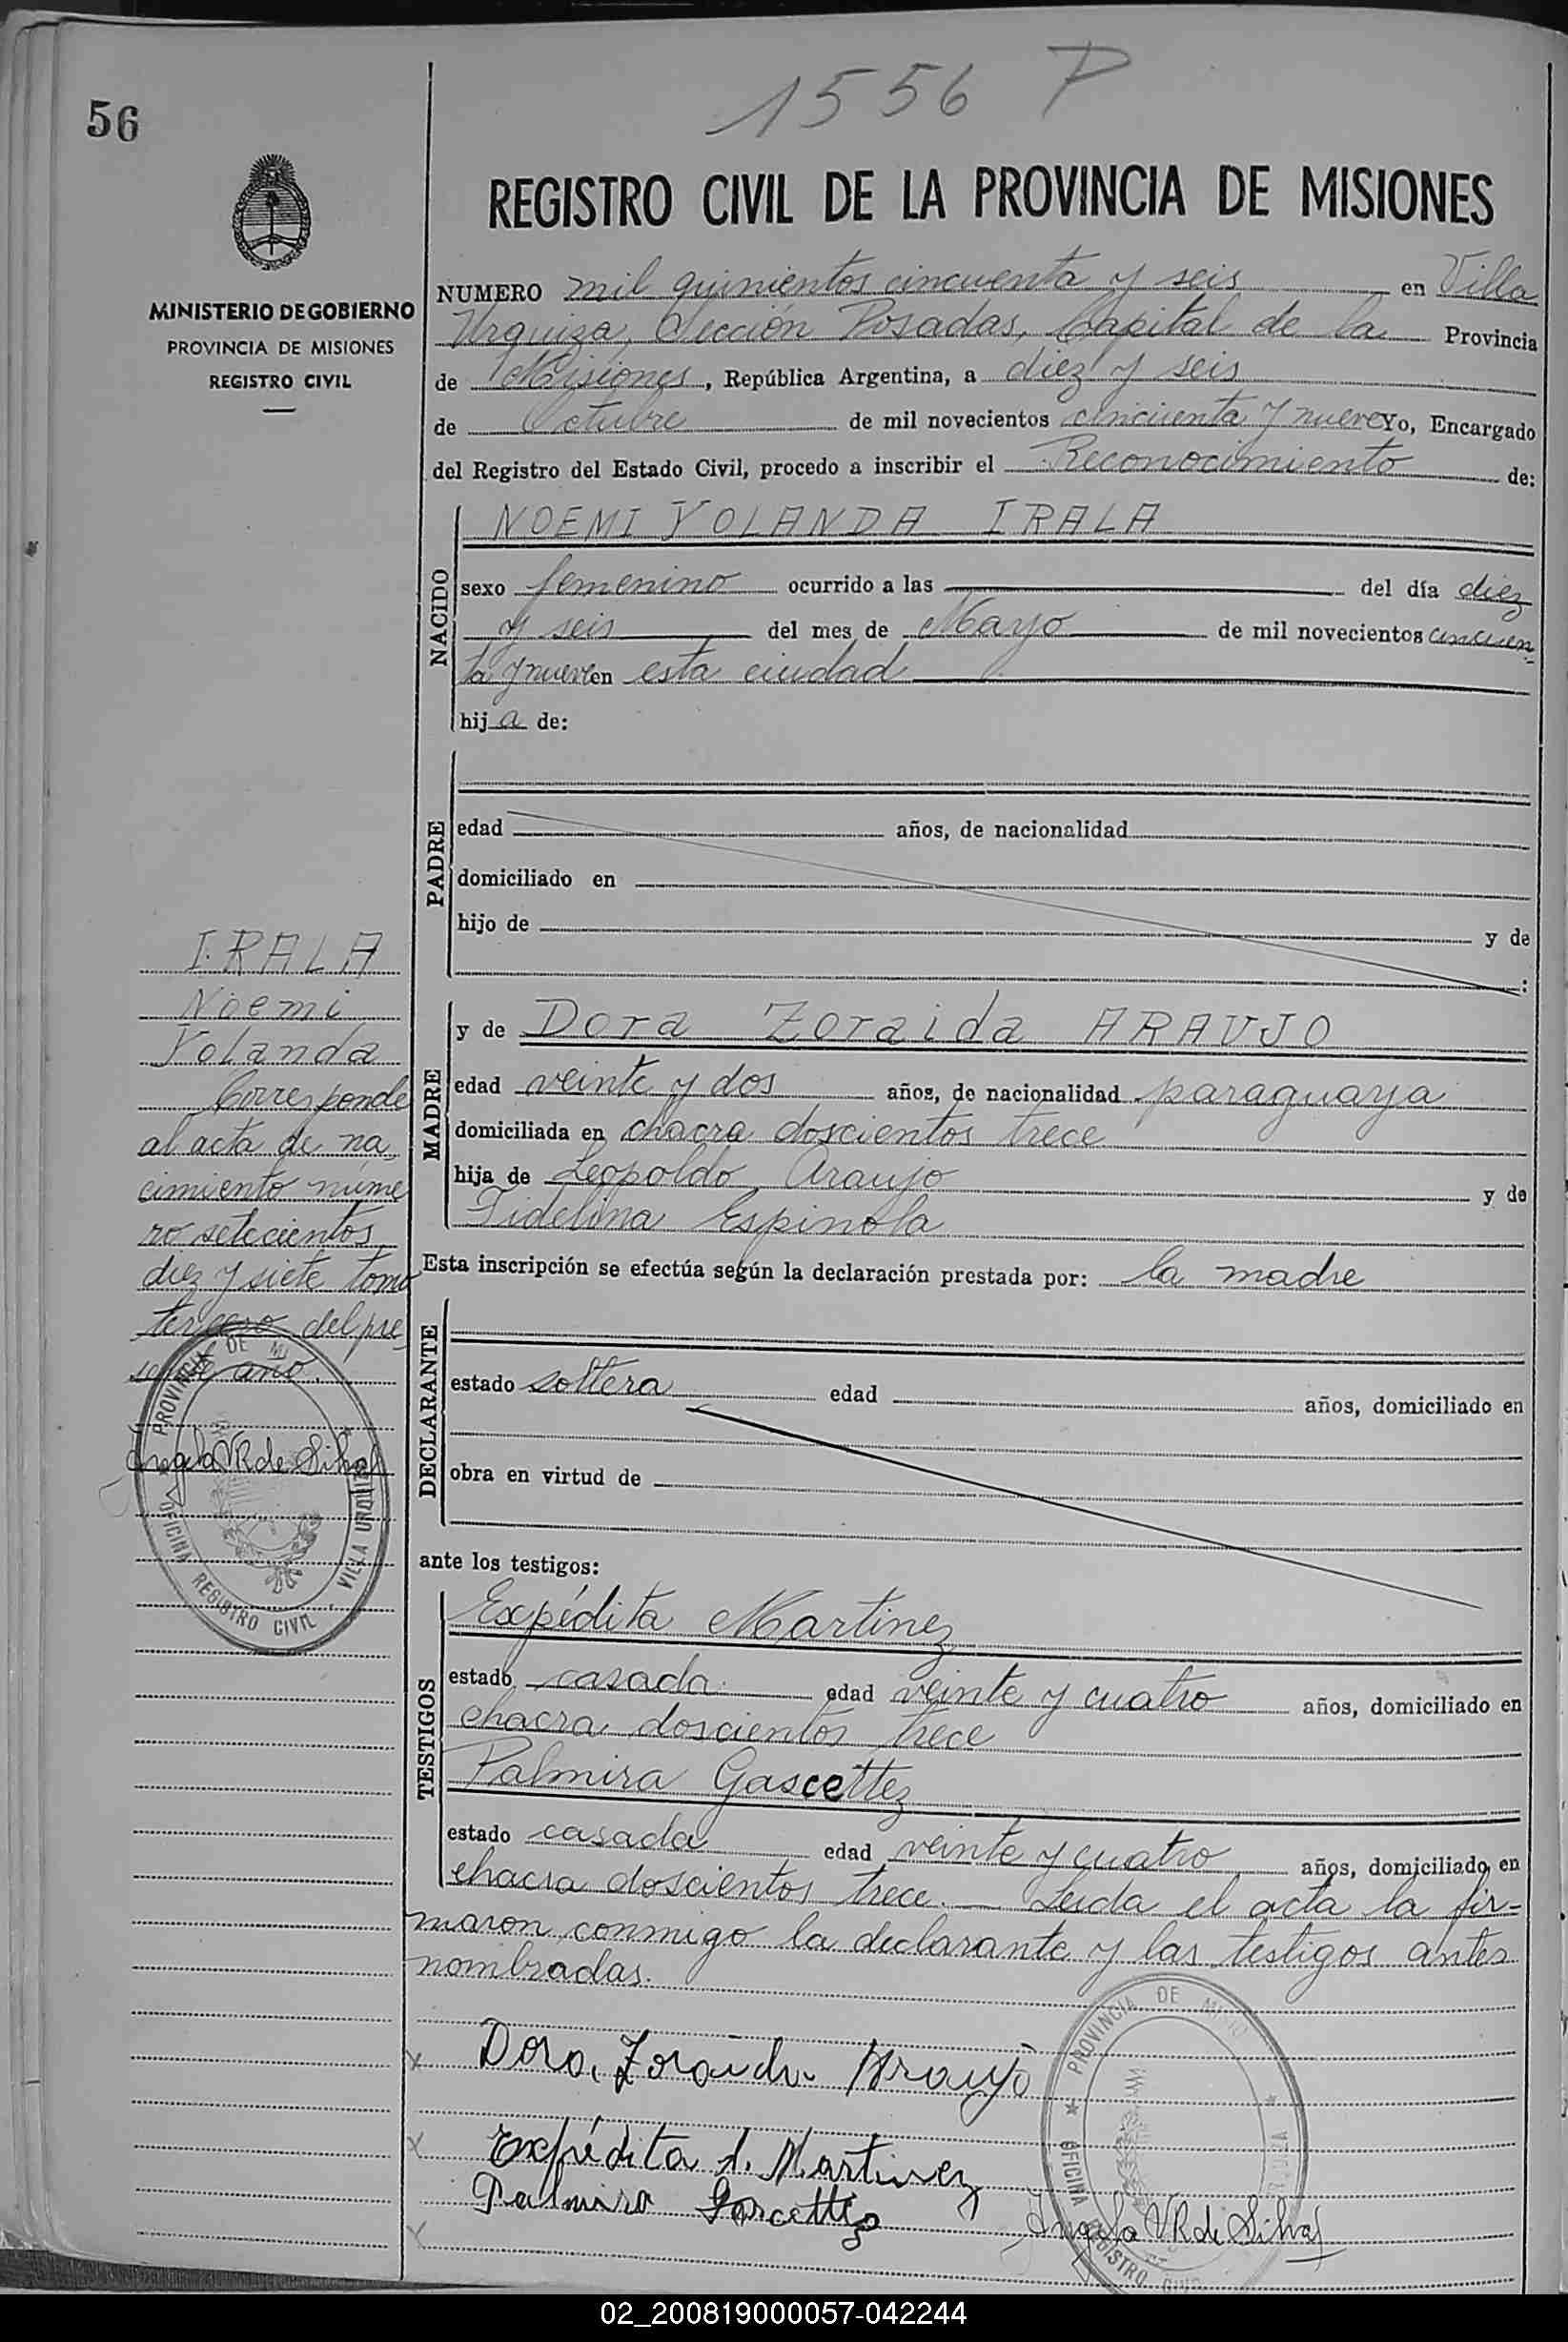 1556 P
56
REGISTRO CIVIL DE LA PROVINCIA DE MISIONES
MINISTERIO DE GOBIERNO
PROVINCIA DE MISIONES
REGISTRO CIVIL
NUMERO mil quinientos cincuenta y seis en Villa
Urquiza, Sección Posadas, Capital de la Provincia
de Misiones, República Argentina, a diez y seis
de Octubre de mil novecientos cincuenta y nueve Yo, Encargado
del Registro del Estado Civil, procedo a inscribir el Reconocimiento de:
NACIDO
NOEMI YOLANDA IRALA
sexo femenino ocurrido a las del día diez
y seis del mes de Mayo de mil novecientos cincuen
ta y nueve en esta ciudad
hija de:
PADRE
edad años, de nacionalidad
domiciliado en
hijo de y de
:
IRALA
Noemi
Yolanda
Corresponde
al acta de na
cimiento núme
ro setecientos
diez y siete tomo
tercero del pre
sente año.
Angela VR de Silva
PROVINCIA DE MI
OFICINA REGISTRO CIVIL - VILLA URQUIZA
MADRE
y de Dora Zoraida ARAUJO
edad veinte y dos años, de nacionalidad paraguaya
domiciliada en chacra doscientos trece
hija de Leopoldo Araujo y de
Fidelina Espinola
Esta inscripción se efectúa según la declaración prestada por: la madre
DECLARANTE
estado soltera edad años, domiciliado en
obra en virtud de
ante los testigos:
TESTIGOS
Expédita Martinez
estado casada edad veinte y cuatro años, domiciliado en
chacra doscientos trece
Palmira Gascettez
estado casada edad veinte y cuatro años, domiciliado en
chacra doscientos trece. — Leida el acta la fir=
maron conmigo la declarante y las testigos antes
nombradas.
x Dora Zoraida Araujo
x Expédita A. Martinez
Palmira Gascettez
x
Angela VR de Silva
PROVINCIA DE MISIO
OFICINA REGISTRO CIVIL
02_200819000057-042244